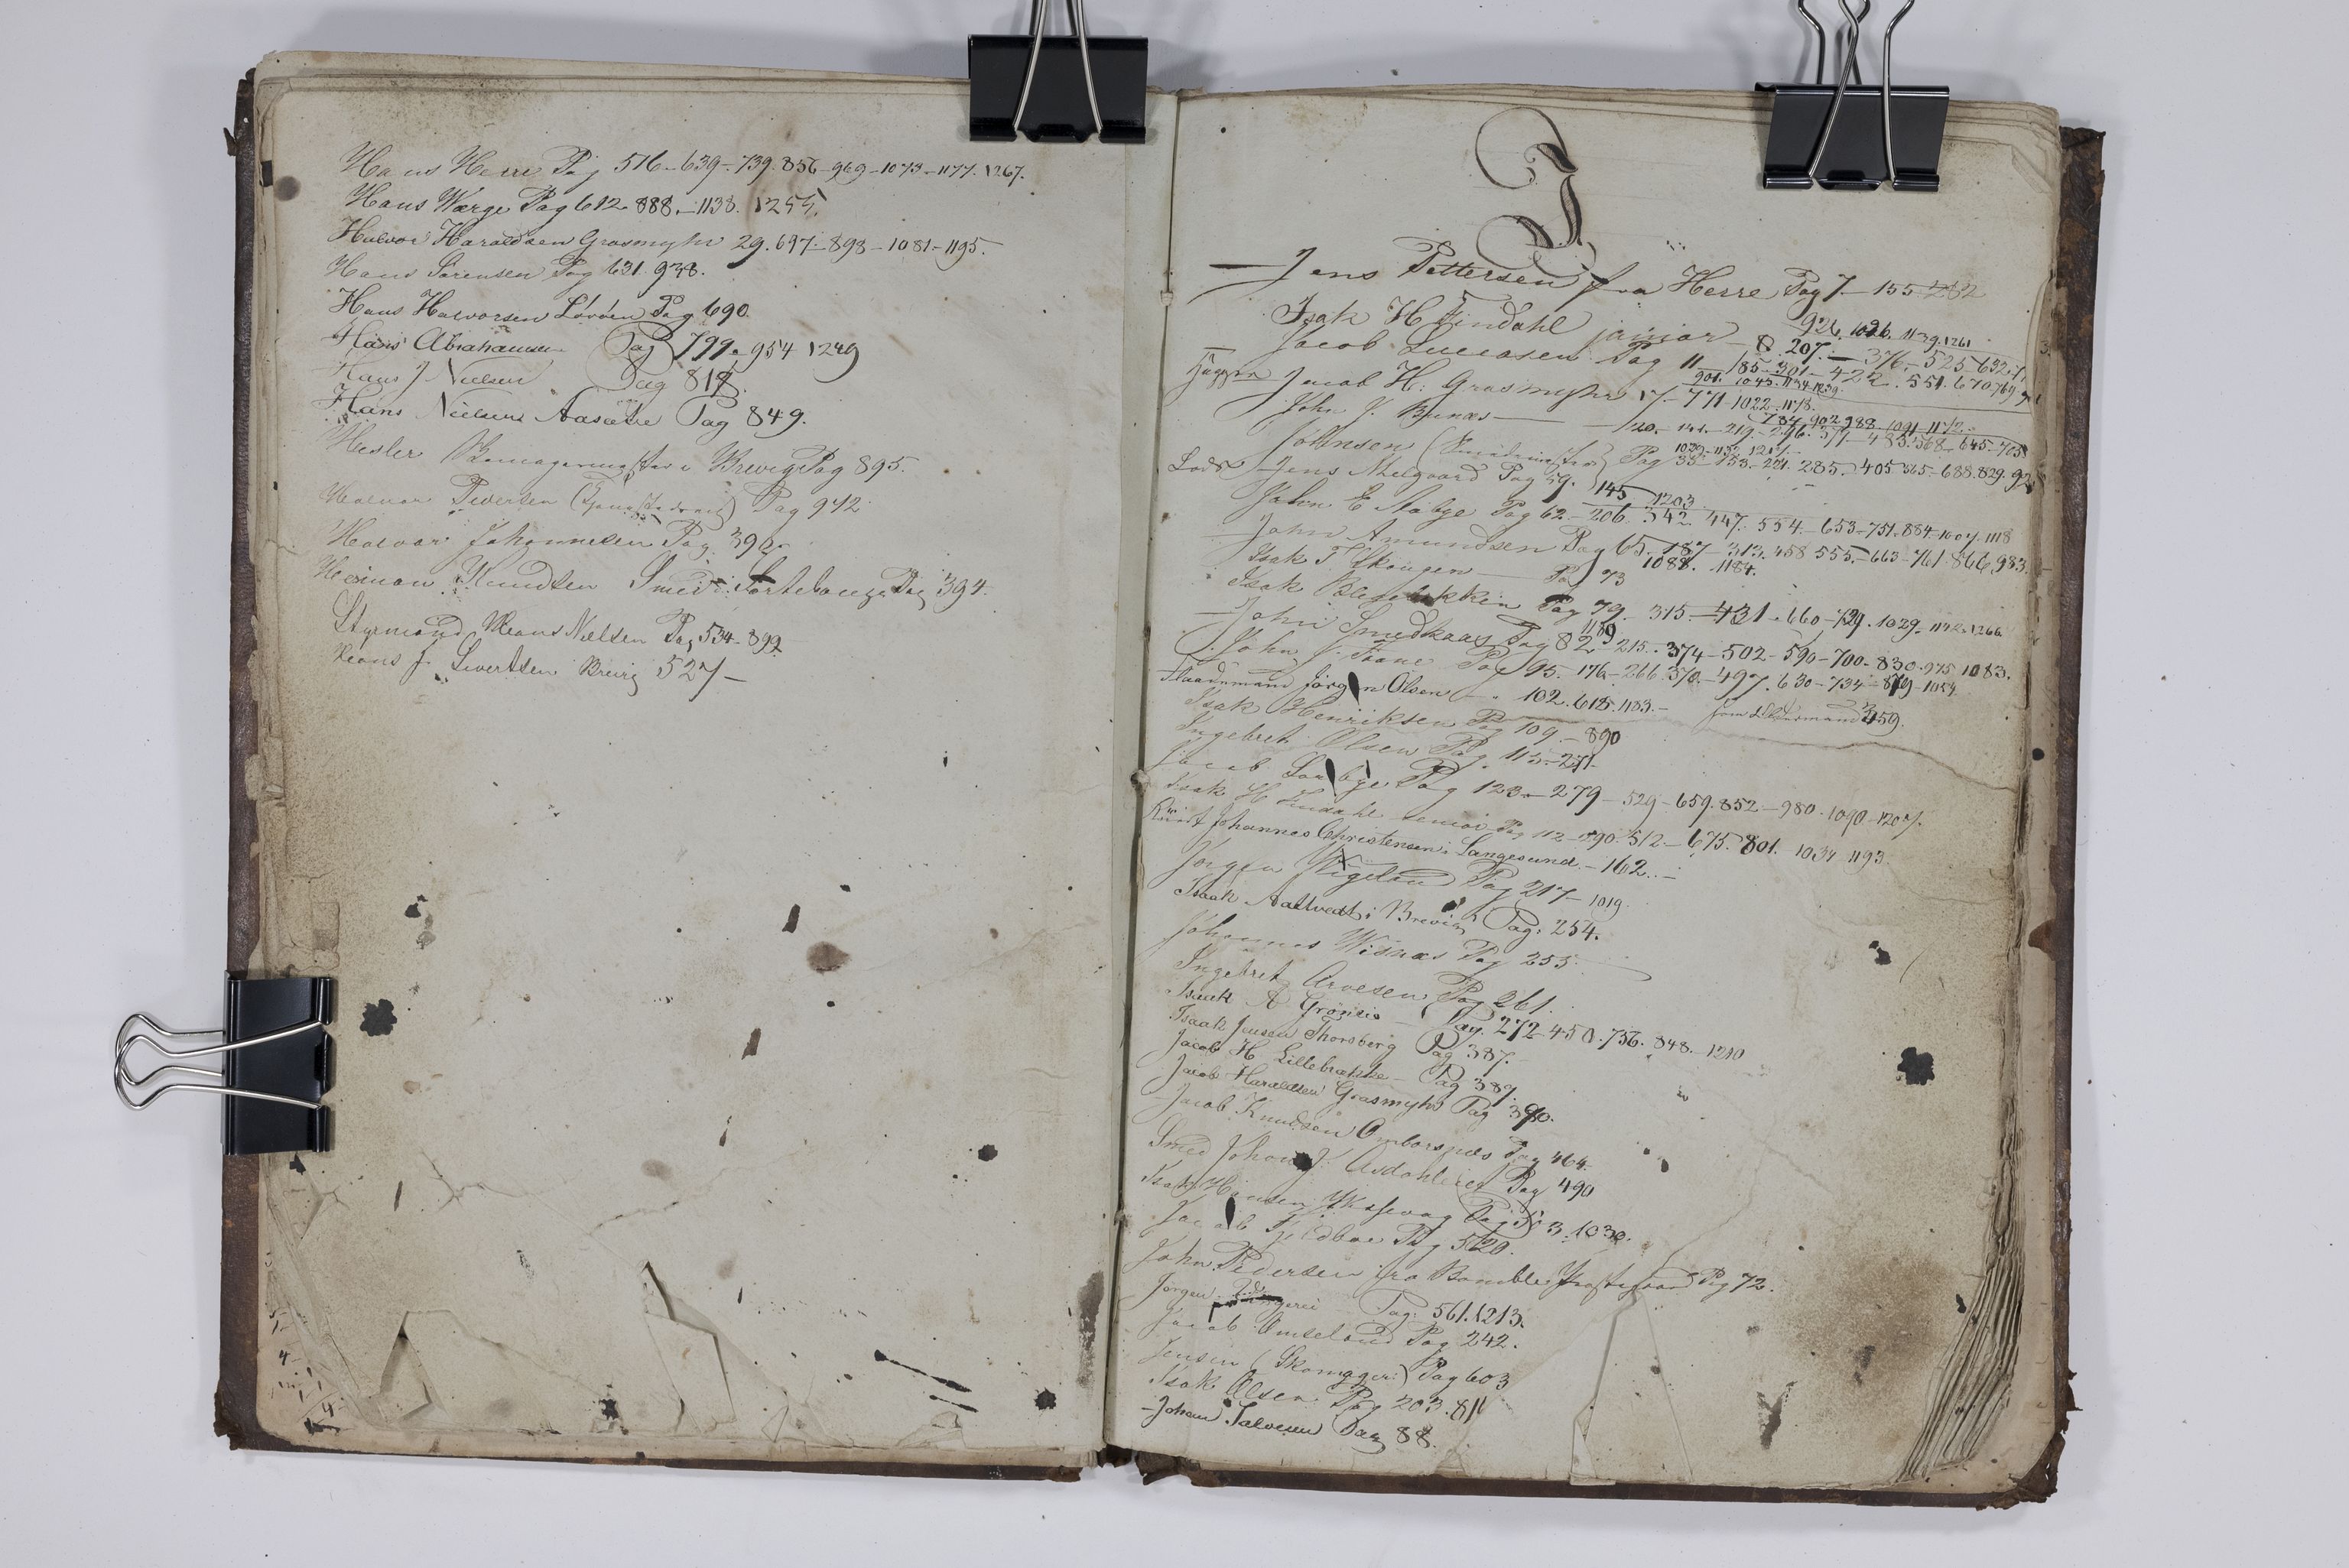 Hans Herre Pag 516-639-739.856-969-1073-1177.1267.
Hans Værge Pag 612-888.-1138. 1255.
Halvor Haraldsen Grasmyhr 29.697-898-1081-1195.
Hans Sørensen Pag 631.938.
Hans Halvorsen Løvøen Pag 690
Hans Abrahamsen Pag 799-954 1249
Hans J Nielsen Pag 818.
Hans Nielsen Aasætre Pag 849.
Hesler i Brevig Pag 895.
Halvor Pedersen Pag 942
Halvor Johannesen Pag. 392
Herman Knudsen Smed i Pag 394.
Styrmand Hans Nielsen Pag 534-899
Hans J. Sivertsen Brevig 527-
J
Jens Pettersen fra Herre Pag 7-155-282
926.1026.1139.1261
Isak H Findahl junior - 8 207.-376.-525-632.
Jacob Lucasen Pag 11-185-301-422.551.670 769
901. 1045.1134.1239.
Hugger Jacob H: Grasmyhr 17-771-1022-1178.
784.902.988.1091-1172.
John J. Bunæs - 20. 141.-219.-296.-371-483.568-645-705
Johnsen Pag 35-153-221.285.-405 565-688.829.92
Lods Jens Melgaard Pag 59. 145 1203
John E Aabye Pag 62-206.342.447.554.-653-751.884-1007.1118
John Amundsen Pag 65.187-313.458 555.-663-761.866.983.
1088. 1184.
Isak T. Skougen Pag 73
Isak Pag 79-315.-431-660-729.1029-1142.1266
1189
John Smedkaas Pag 82-215.-374-502-590-700-830.975.1083.
John J. Trane Pag 95.176-266.370.-497.630-734-879-1054
Jørgen Olsen - 102.618.1183.- 359.
Isak Henriksen Pag 109.-890
Ingebret Olsen Pag. 115-271-
Jacob Pag 123-279-529-659.852-980.1090-1207.
Isak H Findahl senior Pag 112-190.512-675.801.1034-1193.
Johannes Christensen i Langesund.-162.-
Jørgen Wigeland Pag 217-1019
Isaak Aaltvedt i Brevig Pag: 254.
Johannes Wisnæs Pag 255
Ingebret Arvesen Pag 261.
Isaak A Grønsio - Pag. 272-450.756.848.-1210
Isaak Jensen Thorsberg Pag 387.
Jacob H Lillebakke - Pag 389.
Jacob Haraldsen Grasmyhr Pag 390.
Jacob Knudsen Omborsnæs Pag 464.
Smed Johan J. Pag 490
Isak Hansen Pag 513.1030.
Jacob Pag 520.
John Pedersen fra Bamble Pag 72.
Jørgen Pag: 561.1213.
Jacob Omseland Pag 242.
Jensen (Skomager) Pag 603
Isak Olsen Pag 203.811
Johan Salvesen Pag 88.